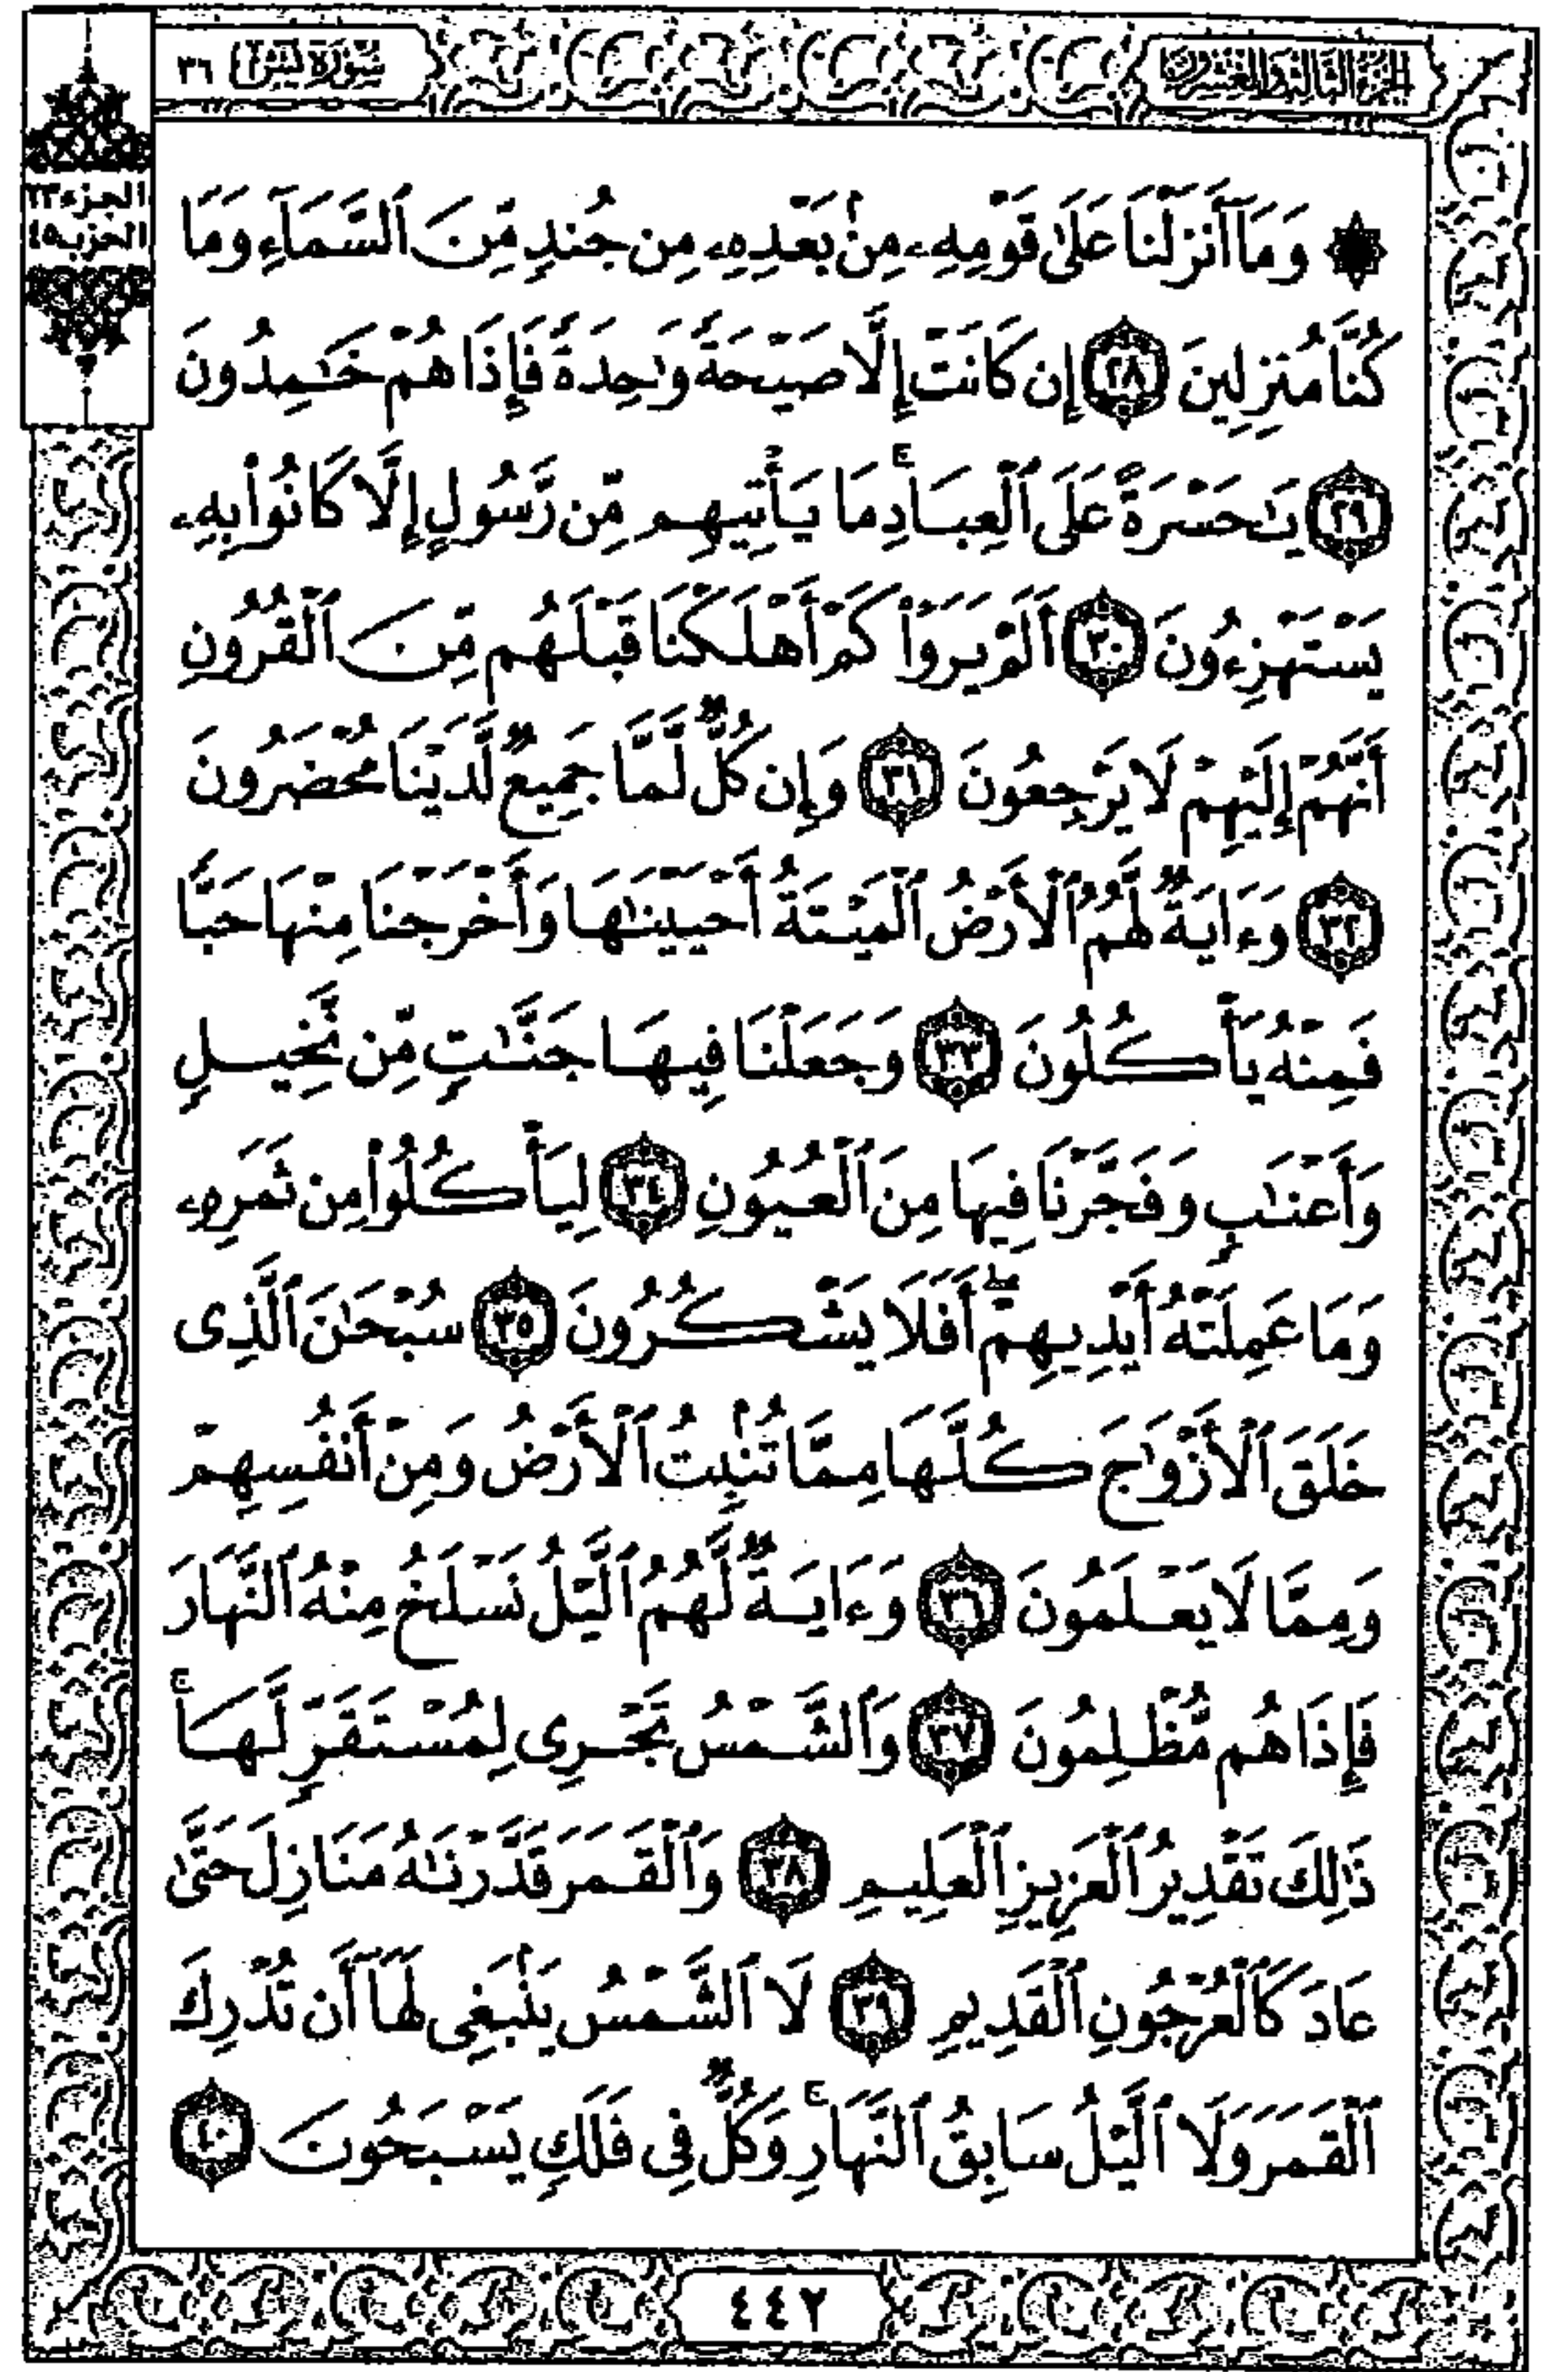 الجزء الثالث والعشرون
سورة يس ٣٦
الجزء ٢٣
الحزب ٤٥
۞ وَمَآ أَنزَلْنَا عَلَىٰ قَوْمِهِۦ مِنۢ بَعْدِهِۦ مِن جُندٍ مِّنَ ٱلسَّمَآءِ وَمَا
كُنَّا مُنزِلِينَ ٢٨ إِن كَانَتْ إِلَّا صَيْحَةً وَٰحِدَةً فَإِذَا هُمْ خَـٰمِدُونَ
٢٩ يَـٰحَسْرَةً عَلَى ٱلْعِبَادِ ۚ مَا يَأْتِيهِم مِّن رَّسُولٍ إِلَّا كَانُوا۟ بِهِۦ
يَسْتَهْزِءُونَ ٣٠ أَلَمْ يَرَوْا۟ كَمْ أَهْلَكْنَا قَبْلَهُم مِّنَ ٱلْقُرُونِ
أَنَّهُمْ إِلَيْهِمْ لَا يَرْجِعُونَ ٣١ وَإِن كُلٌّ لَّمَّا جَمِيعٌ لَّدَيْنَا مُحْضَرُونَ
٣٢ وَءَايَةٌ لَّهُمُ ٱلْأَرْضُ ٱلْمَيْتَةُ أَحْيَيْنَـٰهَا وَأَخْرَجْنَا مِنْهَا حَبًّا
فَمِنْهُ يَأْكُلُونَ ٣٣ وَجَعَلْنَا فِيهَا جَنَّـٰتٍ مِّن نَّخِيلٍ
وَأَعْنَـٰبٍ وَفَجَّرْنَا فِيهَا مِنَ ٱلْعُيُونِ ٣٤ لِيَأْكُلُوا۟ مِن ثَمَرِهِۦ
وَمَا عَمِلَتْهُ أَيْدِيهِمْ ۖ أَفَلَا يَشْكُرُونَ ٣٥ سُبْحَـٰنَ ٱلَّذِى
خَلَقَ ٱلْأَزْوَٰجَ كُلَّهَا مِمَّا تُنۢبِتُ ٱلْأَرْضُ وَمِنْ أَنفُسِهِمْ
وَمِمَّا لَا يَعْلَمُونَ ٣٦ وَءَايَةٌ لَّهُمُ ٱلَّيْلُ نَسْلَخُ مِنْهُ ٱلنَّهَارَ
فَإِذَا هُم مُّظْلِمُونَ ٣٧ وَٱلشَّمْسُ تَجْرِى لِمُسْتَقَرٍّ لَّهَا ۚ
ذَٰلِكَ تَقْدِيرُ ٱلْعَزِيزِ ٱلْعَلِيمِ ٣٨ وَٱلْقَمَرَ قَدَّرْنَـٰهُ مَنَازِلَ حَتَّىٰ
عَادَ كَٱلْعُرْجُونِ ٱلْقَدِيمِ ٣٩ لَا ٱلشَّمْسُ يَنۢبَغِى لَهَآ أَن تُدْرِكَ
ٱلْقَمَرَ وَلَا ٱلَّيْلُ سَابِقُ ٱلنَّهَارِ ۚ وَكُلٌّ فِى فَلَكٍ يَسْبَحُونَ ٤٠
٤٤٢